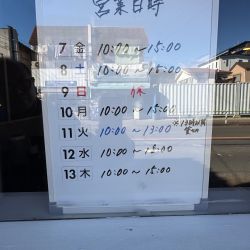 営業日時
7 金 10:00～15:00
8 土 10:00～15:00
9 日 休
10 月 10:00～15:00
11 火 10:00～13:00 ※13時以降
12 水 10:00～15:00
13 木 10:00～15:00